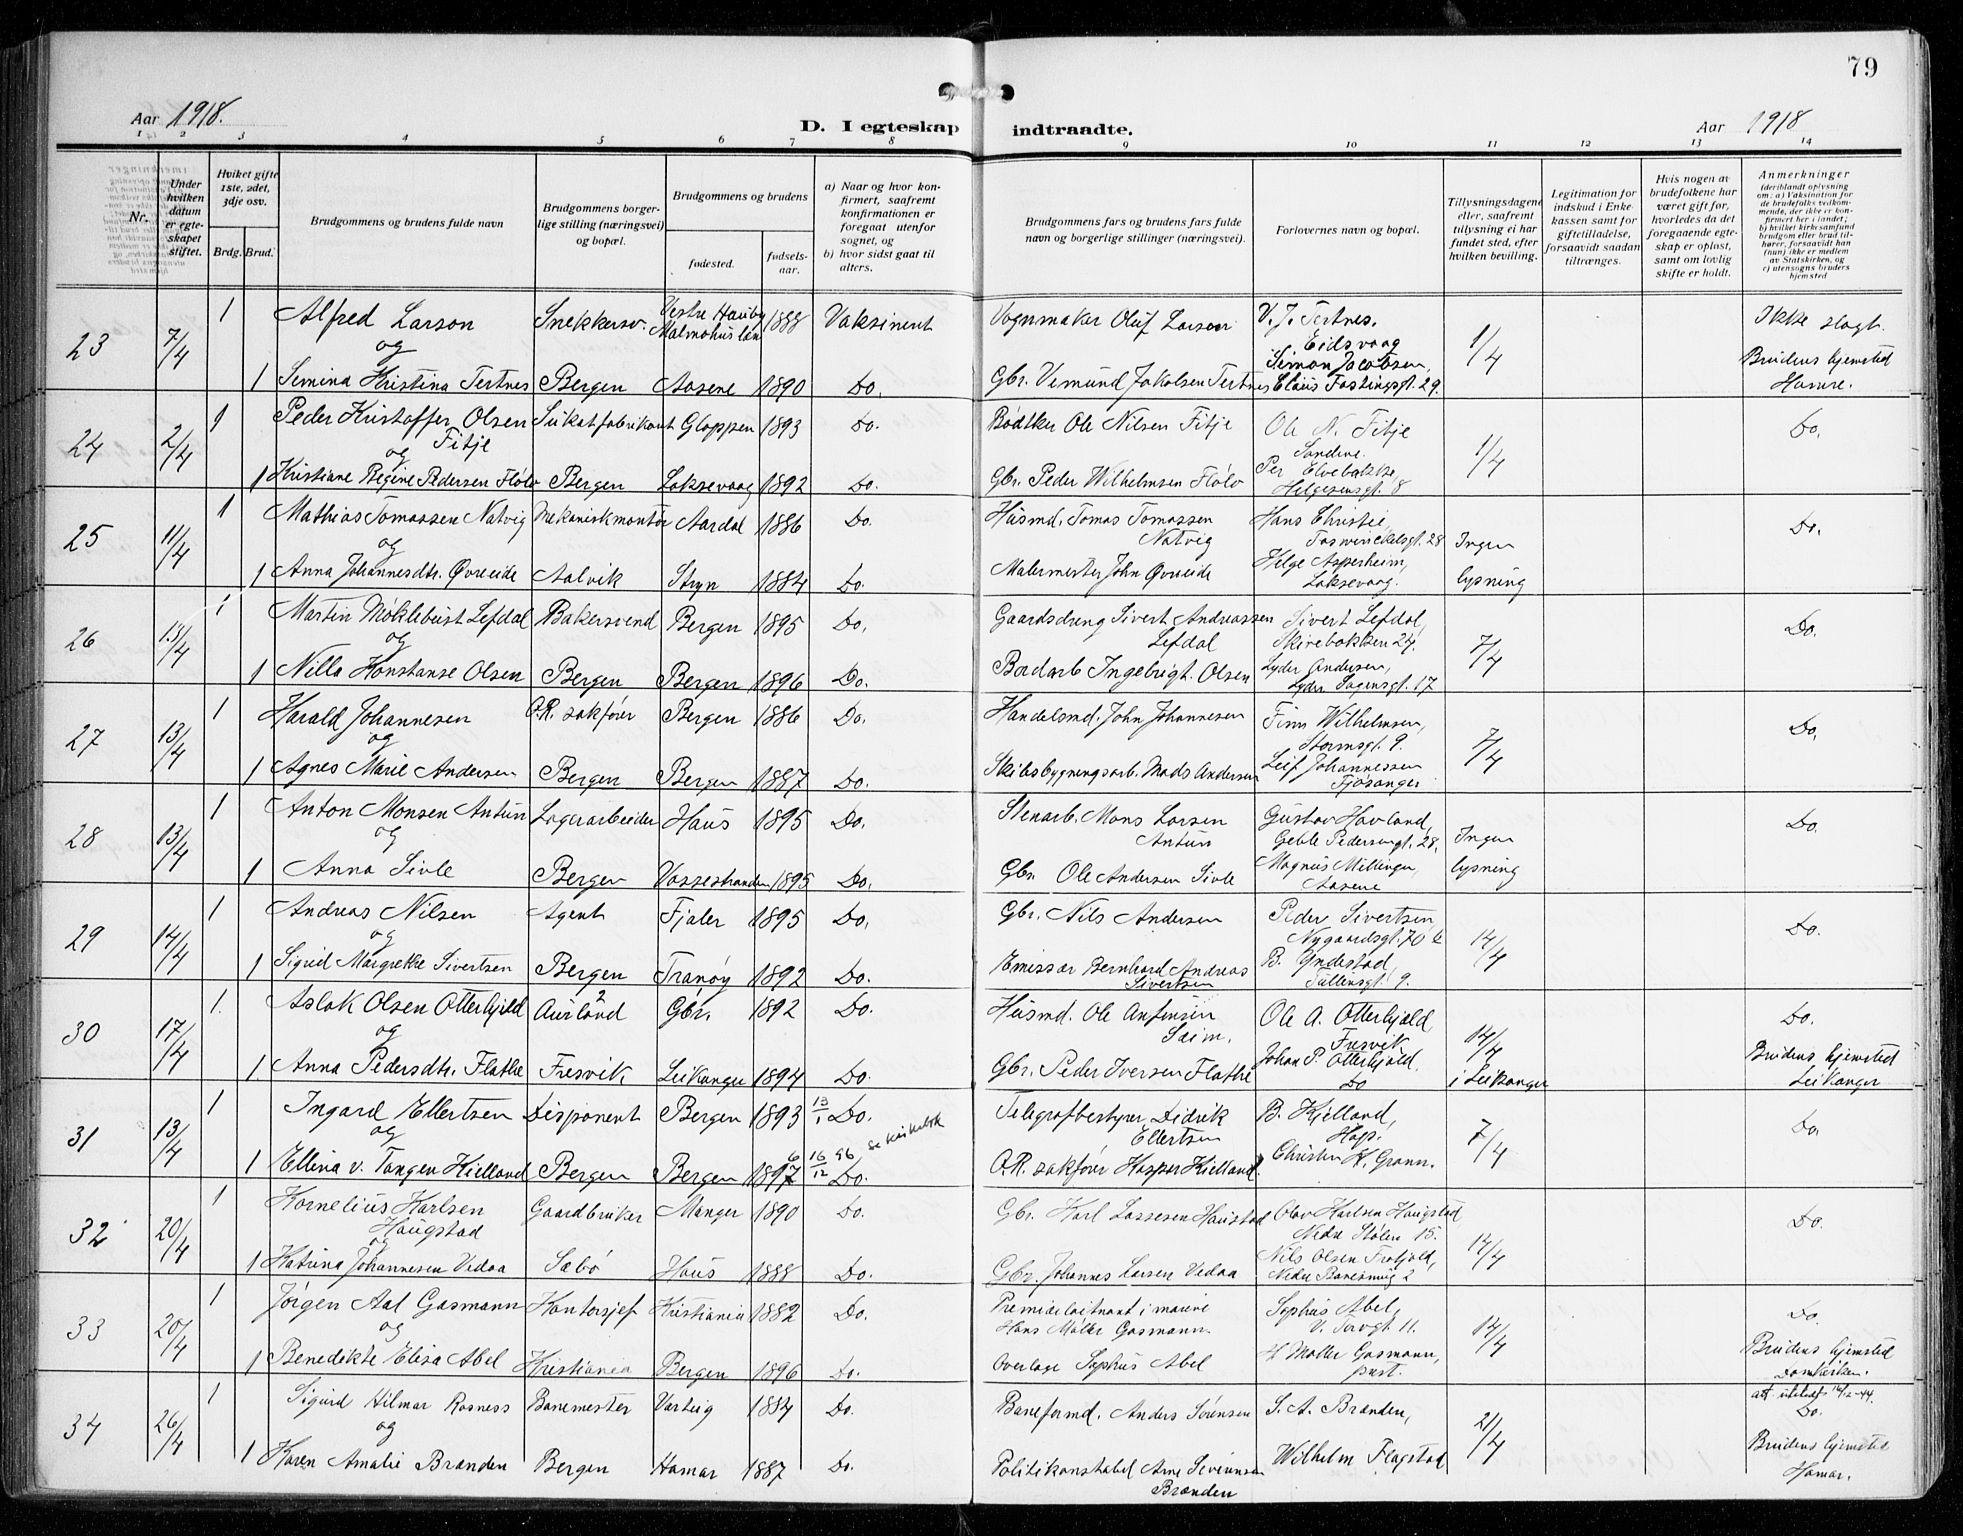 79
Aar 1918.
D. I egteskap indtraadte.
Aar 1918
1 2 3 4 5 6 7 8 9 10 11 12 13 14
Nr.
Under hvilken datum er egteskapet stiftet.
Hviket gifte 1ste, 2det, 3dje osv.
Brdg. Brud.
Brudgommens og brudens fulde navn
Brudgommens borgerlige stilling (næringsvei) og bopæl.
Brudgommens og brudens
fødested.
fødselsaar.
a) Naar og hvor konfirmert, saafremt konfirmationen er foregaat utenfor sognet, og
b) hvor sidst gaat til alters.
Brudgommens fars og brudens fars fulde navn og borgerlige stillinger (næringsvei).
Forlovernes navn og bopæl.
Tillysningsdagene eller, saafremt tillysning ei har fundet sted, efter hvilken bevilling.
Legitimation for indskud i Enkekassen samt for giftetilladelse, forsaavidt saadan tiltrænges.
Hvis nogen av brudefolkene har været gift før, hvorledes da det foregaaende egteskap er opløst, samt om lovlig skifte er holdt.
Anmerkninger
(deriblandt oplysning om: a) Vaksination for de brudefolks vedkommende, der ikke er konfirmert her i landet; b) hvilket kirkesamfund brudgom eller brud tilhører, forsaavidt han (hun) ikke er medlem av Statskirken, og c) utensogns bruders hjemsted
23 7/4 1 Alfred Larson Snekkersv. Vestre Malmøhus län 1888 Vaksinert Vognmaker Oluf Larson V. J. Tertnes, Eidsvaag 1/4 Ikke slegt.
og
1 Semina Kristina Tertnes Bergen Aasene 1890 Do. Gbr. Vemund Jakobsen Tertnes Simon Jacobsen, Claus Fastingsgt. 29. Brudens hjemsted Hamre.
24 2/4 1 Peder Kristoffer Olsen Fitje Gloppen 1893 Do. Bødtker Ole Nilsen Fitje Ole N. Fitje Sandene. 1/4 Do.
og
1 Kristiane Regine Pedersen Flølo Bergen Laksevaag 1892 Do. Gbr. Peder Wilhelmsen Flølo Per Elvebakke, Helgesensgt. 8
25 11/4 1 Mathias Tomassen Natvig Mekanisk montør Aardal 1886 Do. Husmd. Tomas Tomassen Natvig Hans Christie, Foswinckelsgt. 28 Ingen lysning Do.
og
1 Anna Johannesdtr. Øvreeide Aalvik Stryn 1884 Do. Malermester John Øvreeide Helge Asperheim, Laksevaag.
26 13/4 1 Martin Møklebust Lefdal Bakersvend Bergen 1895 Do. Gaardsdreng Sivert Andreassen Lefdal Sivert Lefdal, Skivebakken 24. 7/4 Do.
og
1 Nilla Konstanse Olsen Bergen Bergen 1896 Do. Ingebrigt Olsen Lyder Andersen, Lyder Sagensgt. 17
27 13/4 1 Harald Johannesen O.R. sakfører Bergen 1886 Do. Handelsmd. John Johannesen Finn Wilhelmsen, Stormsgt. 9. 7/4 Do.
og
1 Agnes Marie Andersen Bergen Bergen 1887 Do. Skibsbygningsarb. Mads Andersen Leif Johannessen Fjøsanger
28 13/4 1 Anton Monsen Antun Lagerarbeider Haus 1895 Do. Stenarb. Mons Larsen Antun Gustav Havland, Geble Pedersensgt. 28. Ingen lysning Do.
og
1 Anna Sivle Bergen Vossestranden 1895 Do. Gbr. Ole Andersen Sivle Magnus Millinger, Aasene
29 14/4 1 Andreas Nilsen Agent Fjaler 1895 Do. Gbr. Nils Andersen Peder Sivertsen Nygaardsgt. 70 b 14/4 Do.
og
1 Sigrid Margrethe Sivertsen Bergen Tranøy 1892 Do. Emissær Bernhard Andreas Sivertsen B. Yndestad, Tullinsgt. 9.
30 17/4 1. Aslak Olsen Otterhjeld Aurland 2 Gbr. 1892 Do. Husmd. Ole Anfinsen Saim. Ole A. Otterhjeld, Fresvik 14/4 i Leikanger Do.
og
1. Anna Pedersdtr. Flathe Fresvik Leikanger 1894 Do. Gbr. Peder Iversen Flathe Johan P. Otterhjeld. Do Brudens hjemsted Leikanger
31 13/4 1 Ingard Ellertsen Disponent Bergen 1893 13/1 Do. Telegrafbestyrer Didrik Ellertsen B. Kielland, Hop. 7/4 Do.
og
1 Ellina v. Tangen Kielland Bergen Bergen 1897 6 16/12 96 Do. se kirkebok O.R. sakfører Kasper Kielland Christen K. Grann.
32 20/4 1 Kornelius Karlsen Haugstad Gaardbruker Manger 1890 Do. Gbr. Karl Lassesen Haustad Olav Karlsen Haugstad Nedre Stølen 15. 14/4 Do.
og
1 Katrina Johannesen Vedaa Sæbø Haus 1888 Do. Gbr. Johannes Larsen Vedaa Nils Olsen
33 20/4 1 Jørgen Aal Gasmann Kontorsjef Kristiania 1882 Do. Premierløitnant i marine Hans Møller Gasmann. Sophus Abel, V. Torvgt. 11. 14/4 Do.
og
1 Benedikte Elisa Abel Kristiania Bergen 1896 Do. Overlæge Sophus Abel H. Møller Gasmann, pust. Brudens hjemsted Domkirken.
34 26/4 1 Sigurd Hilmar Rosness Banemester Varteig 1884 Do. Baneformd. Anders Sørensen S. A. Brænden, 21/4 att. utstedt 14/12-44. Do.
og
1 Karen Amalie Brænden Bergen Hamar 1887 Do. Politikonstabel Arne Severinsen Brænden Wilhelm Flagstad Brudens hjemsted Hamar.